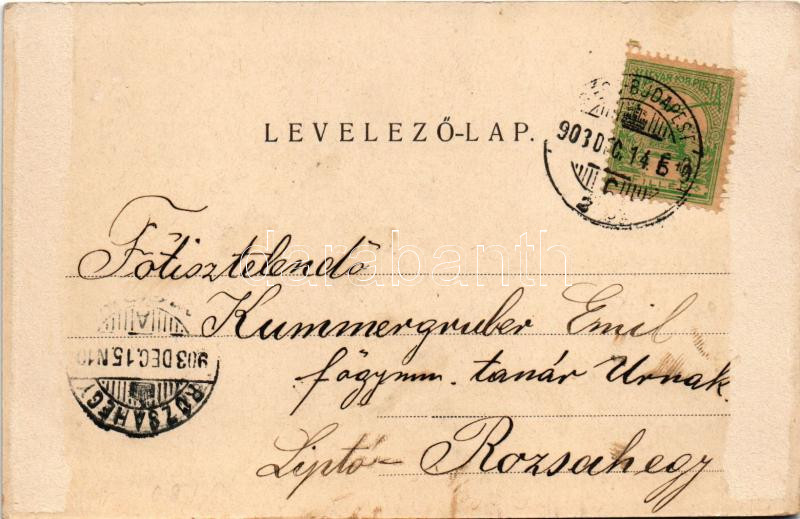 MAGYAR KIR. POSTA
BUDAPEST
903 DEC. 14.
LEVELEZŐ-LAP.
darabanth
Főtisztelendő
Kummergruber Emil
főgymn. tanár Urnak.
Liptó- Rozsahegy
903 DEC. 15. N10
RÓZSAHEGY